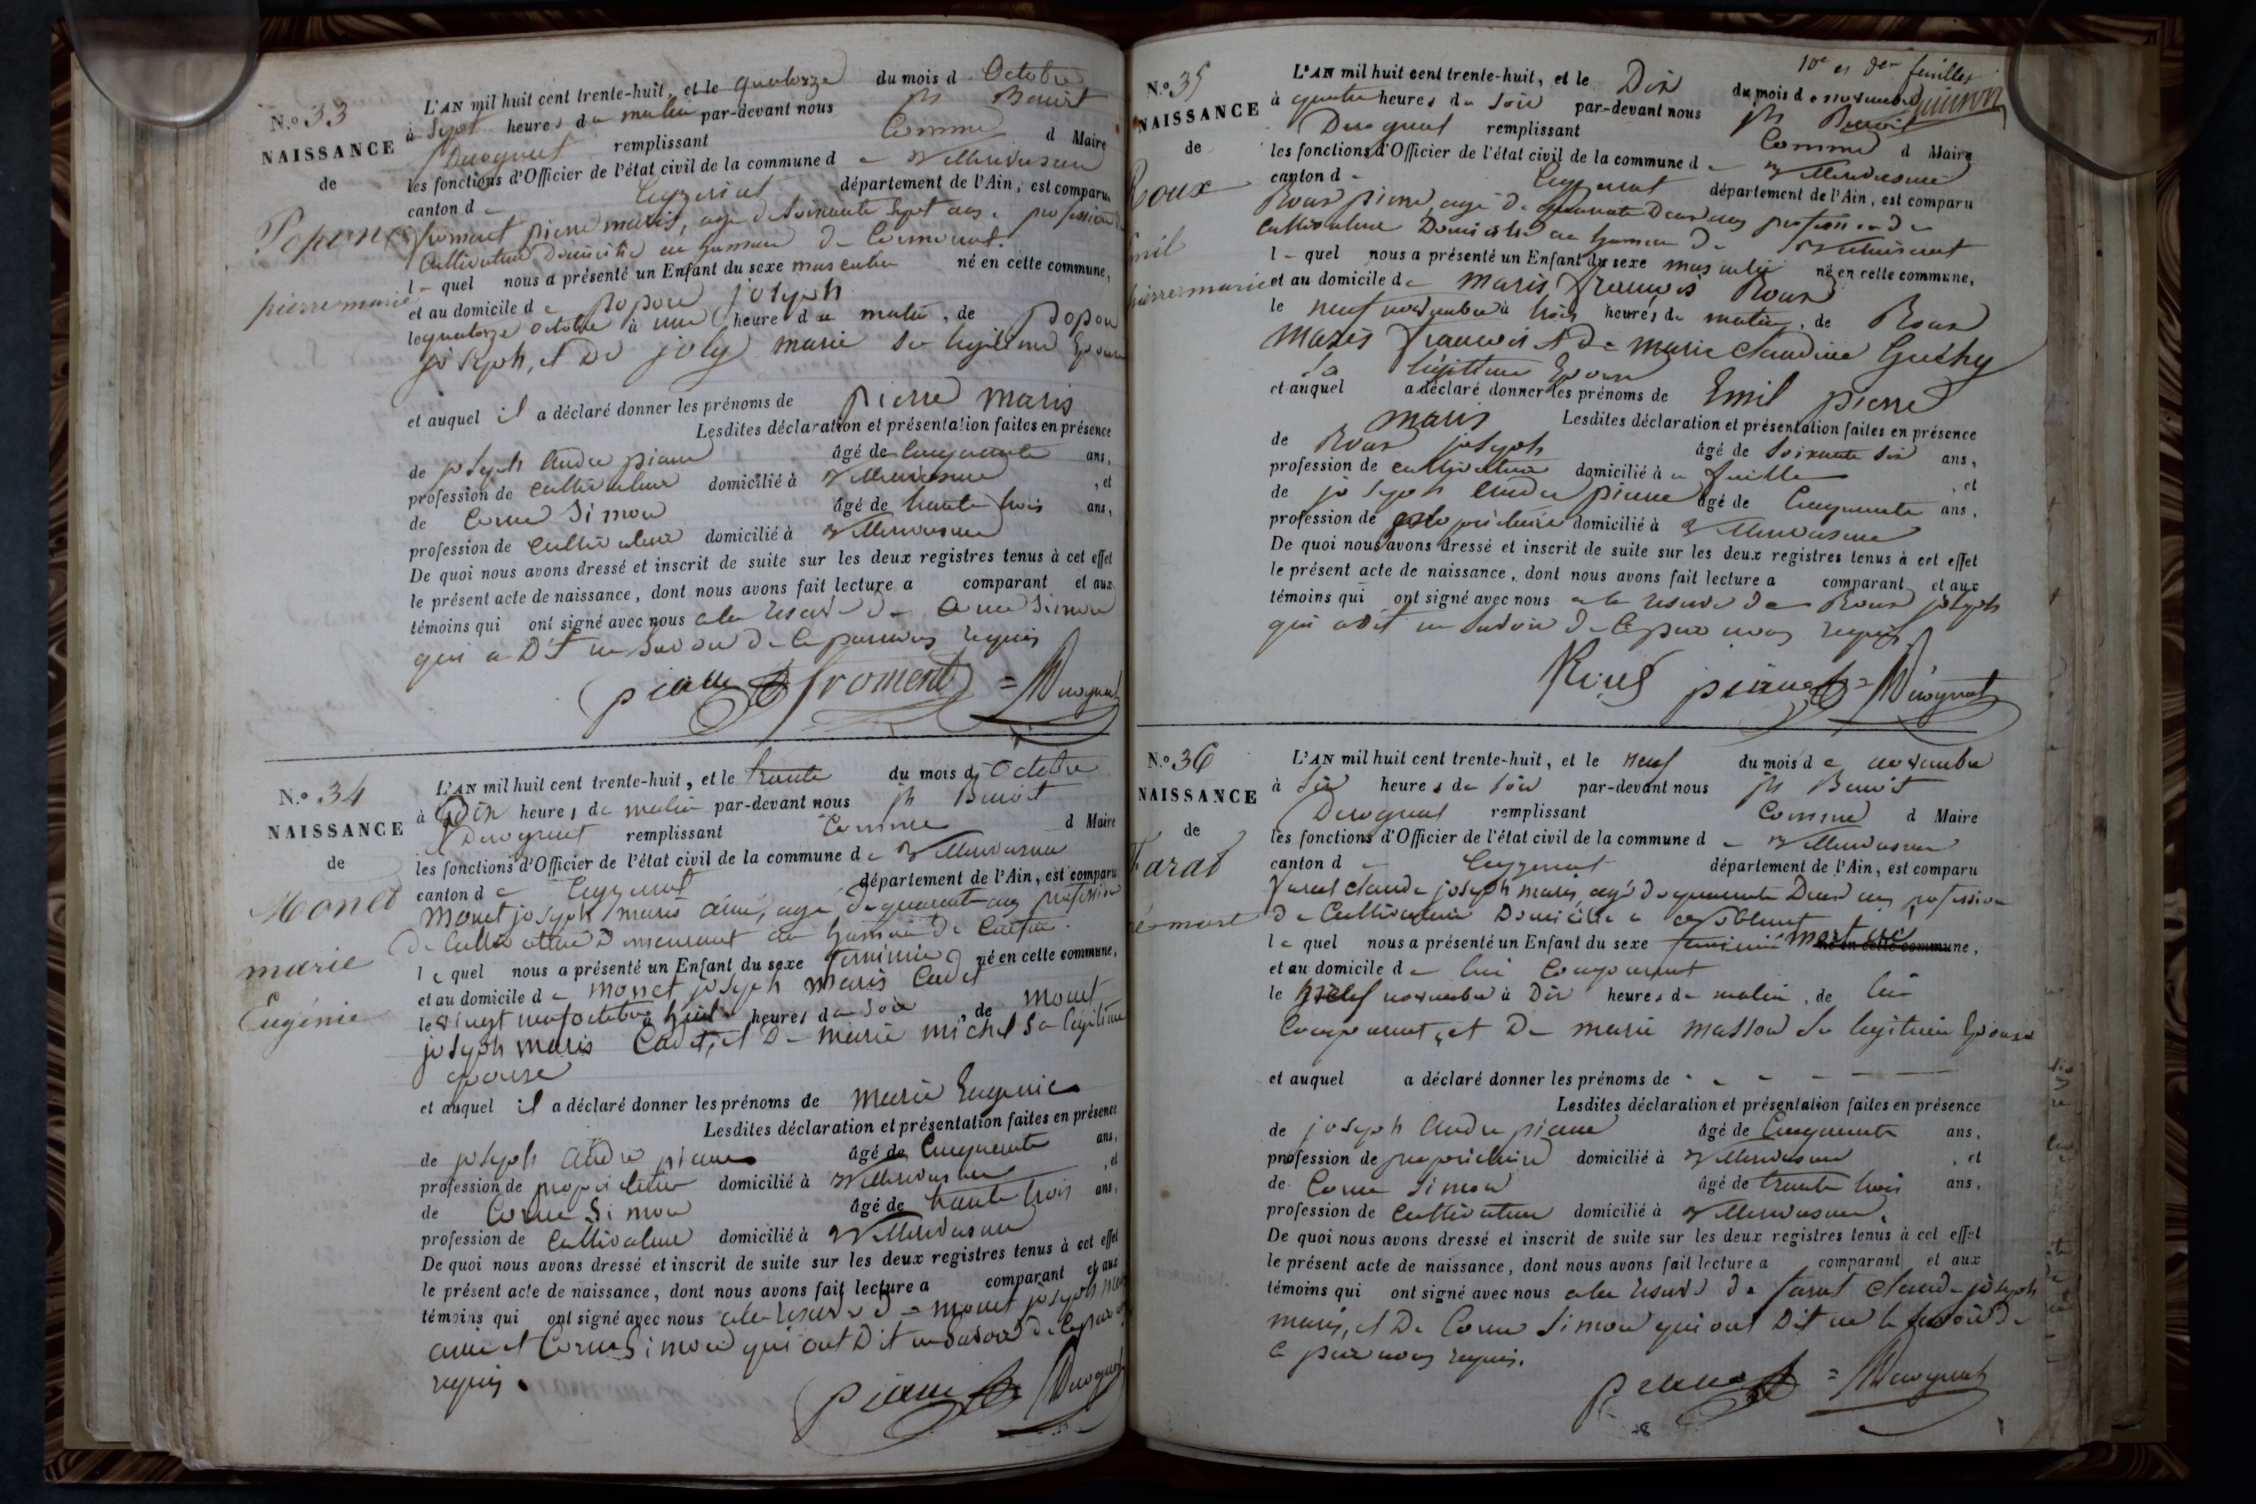 N.o 33
NAISSANCE
de
Popon
pierre marie
L'AN mil huit cent trente-huit, et le quatorze du mois d octobre
à sept heures du matin par-devant nous jh Benoit
Duroquat remplissant Comme d Maire
les fonctions d'Officier de l'état civil de la commune d e Villereversure
canton d e Ceyzeriat département de l'Ain, est comparu
froment pierre marie, agé de soixante sept ans, profession de
Cultivateur domicilié au hameau de
l e quel nous a présenté un Enfant du sexe masculin né en cette commune,
et au domicile d e popon joseph
le quatorze octobre à une heure du matin, de popon
joseph, et De joly marie sa légitime Epouse
et auquel il a déclaré donner les prénoms de pierre marie
Lesdites déclaration et présentation faites en présence
de joseph andre piane âgé de Cinquante ans,
profession de cultivateur domicilié à Villereversure, et
de Corne Simon âgé de trente trois ans,
profession de Cultivateur domicilié à Villereversure
De quoi nous avons dressé et inscrit de suite sur les deux registres tenus à cet effet
le présent acte de naissance, dont nous avons fait lecture a comparant et aux
témoins qui ont signé avec nous a la reserve de Corne Simon
qui a Dit ne savoir de ce par nous requis
piane froment = Duroquat
N.o 34
NAISSANCE
de
Monet
marie
Eugénie
L'AN mil huit cent trente-huit, et le trente du mois d Octobre
à Dix heures du matin par-devant nous jh Benoit
Duroquat remplissant Comme d Maire
les fonctions d'Officier de l'état civil de la commune d e Villereversure
canton d e Ceyzeriat département de l'Ain, est comparu
Monet joseph marie ainé, agé de quarante ans profession
De Cultivateur Demeurant au hameau de
l e quel nous a présenté un Enfant du sexe feminin né en cette commune,
et au domicile d e monet joseph marie Cadet
le vingt neuf octobre à huit heures du soir, de monet
joseph marie Cadet, et De marie michel sa légitime
epouse
et auquel il a déclaré donner les prénoms de marie Eugenie
Lesdites déclaration et présentation faites en présence
de joseph andré piane âgé de Cinquante ans,
profession de propriétaire domicilié à Villereversure, et
de Corne Simon âgé de trente trois ans,
profession de Cultivateur domicilié à Villereversure
De quoi nous avons dressé et inscrit de suite sur les deux registres tenus à cet effet
le présent acte de naissance, dont nous avons fait lecture a comparant et aux
témoins qui ont signé avec nous a la reserve de monet joseph marie
ainé et Corne Simon qui ont Dit ne savoir de ce par nous
requis.
piane Duroquat
10e et der feuillet
N.o 35
NAISSANCE
de
Roux
Emil
pierre marie
L'AN mil huit cent trente-huit, et le Dix du mois de novembre
à quatre heures du soir par-devant nous jh Benoit
Duroquat remplissant Comme d Maire
les fonctions d'Officier de l'état civil de la commune d e Villereversure
canton d e Ceyzeriat département de l'Ain, est comparu
Roux pierre, agé de quarante Deux ans profession de
Cultivateur Domicilié au hameau de
l e quel nous a présenté un Enfant du sexe masculin né en cette commune,
et au domicile d e marie françois Roux
le neuf novembre à trois heures du matin, de Roux
marie françois et De marie claudine Guichy
sa légitime Epouse
et auquel a déclaré donner les prénoms de Emil pierre
marie Lesdites déclaration et présentation faites en présence
de Roux joseph âgé de Soixante Six ans,
profession de cultivateur domicilié à, et
de joseph andre piane âgé de Cinquante ans,
profession de propriétaire domicilié à Villereversure
De quoi nous avons dressé et inscrit de suite sur les deux registres tenus à cet effet
le présent acte de naissance, dont nous avons fait lecture a comparant et aux
témoins qui ont signé avec nous a la reserve de Roux joseph
qui a dit ne savoir de ce par nous requis
Roux piane = Duroquat
N.o 36
NAISSANCE
de
Farat
né mort
L'AN mil huit cent trente-huit, et le neuf du mois d e novembre
à six heures du soir par-devant nous jh Benoit
Duroquat remplissant Comme d Maire
les fonctions d'Officier de l'état civil de la commune d e Villereversure
canton d e Ceyzeriat département de l'Ain, est comparu
farat claude joseph marie, agé de quarante Deux ans, profession
De Cultivateur Domicilié a
l e quel nous a présenté un Enfant du sexe feminin mort né né en cette commune,
et au domicile d e lui Comparant
le neuf novembre à Dix heures du matin, de lui
Comparant, et De marie masson sa légitime Epouse
et auquel a déclaré donner les prénoms de
Lesdites déclaration et présentation faites en présence
de joseph andre piane âgé de Cinquante ans,
profession de propriétaire domicilié à Villereversure, et
de Corne Simon âgé de trente trois ans,
profession de Cultivateur domicilié à Villereversure.
De quoi nous avons dressé et inscrit de suite sur les deux registres tenus à cet effet
le présent acte de naissance, dont nous avons fait lecture a comparant et aux
témoins qui ont signé avec nous a la reserve de farat claude joseph
marie, et De Corne Simon qui ont Dit ne le savoir De
ce par nous requis.
piane = Duroquat